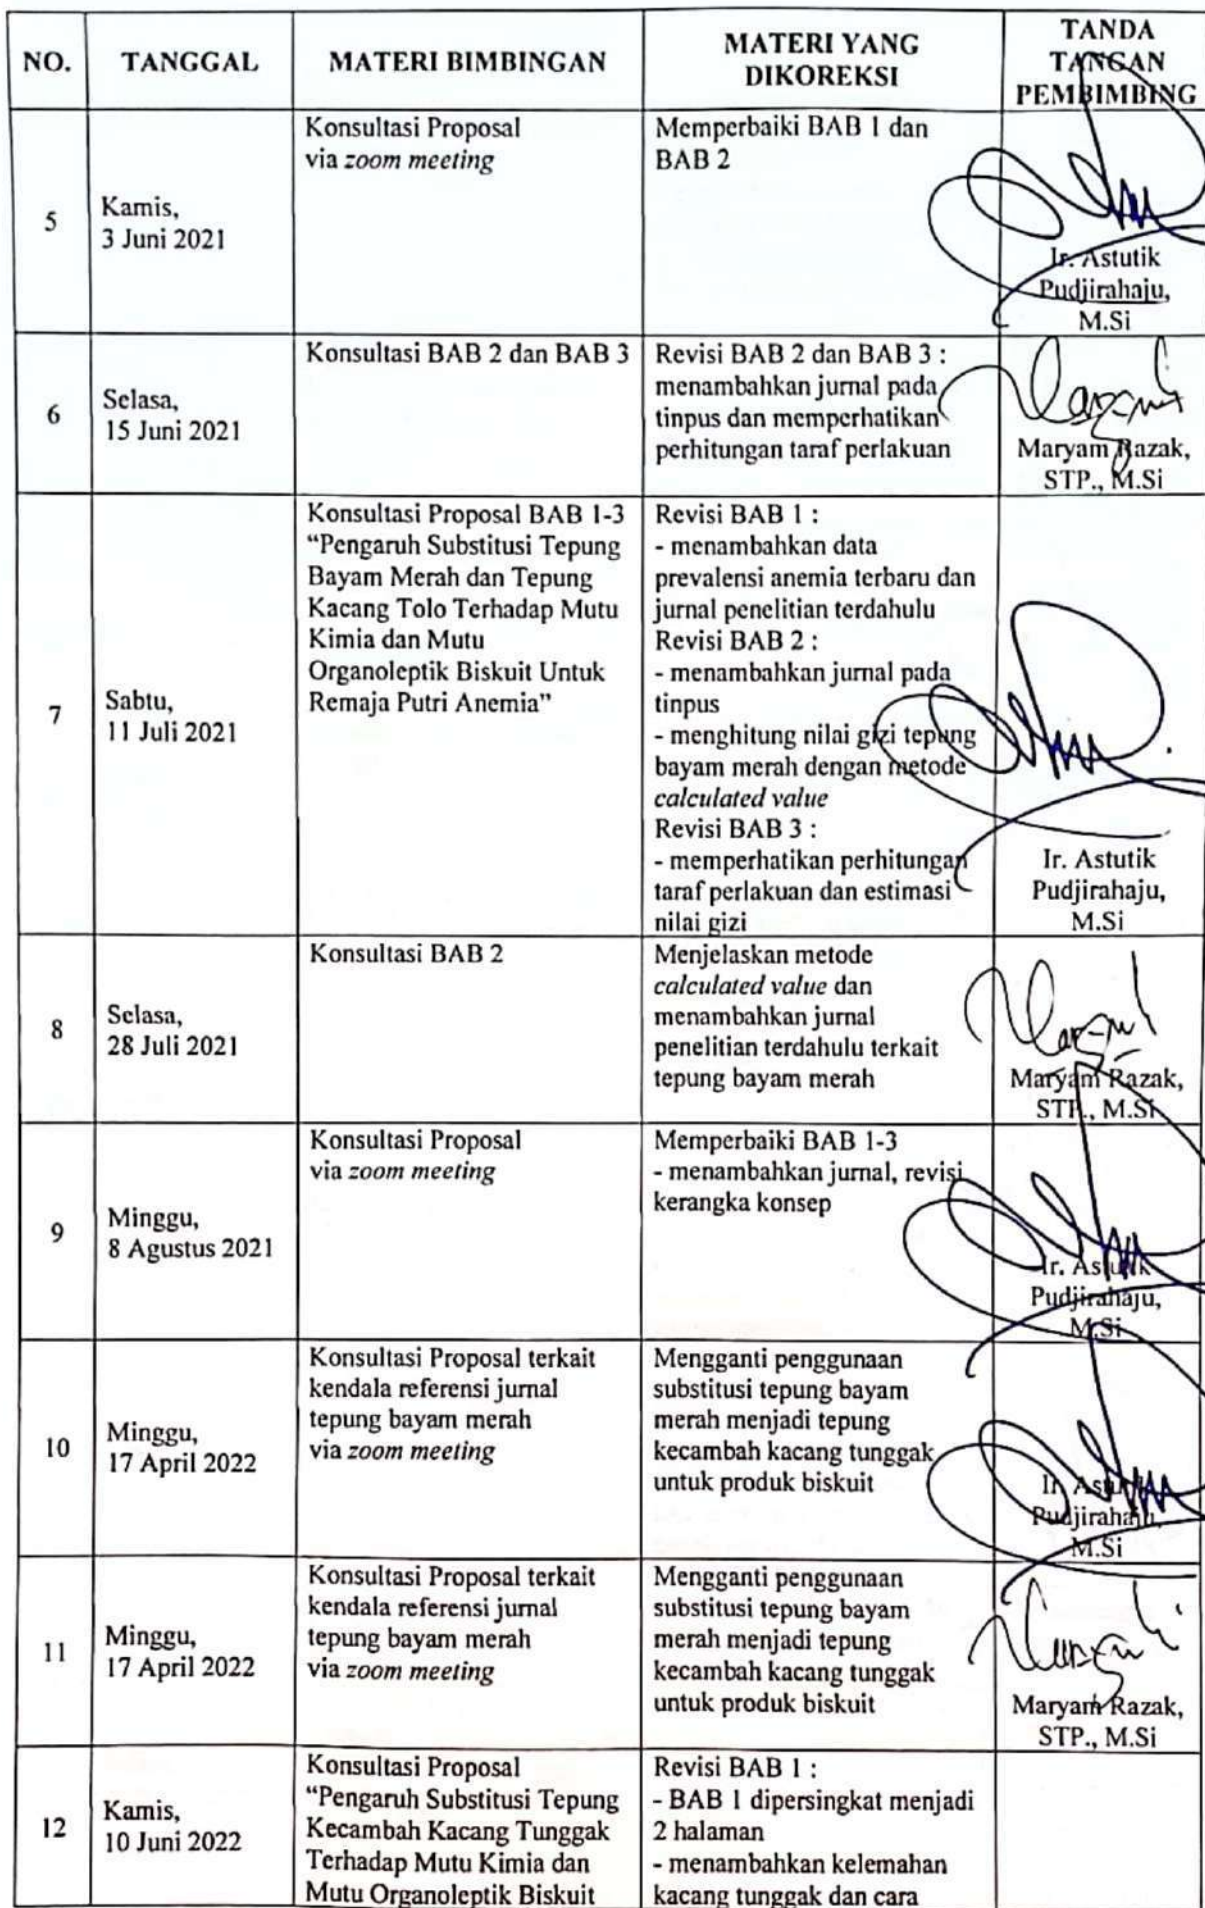 NO.
TANGGAL
MATERI BIMBINGAN
MATERI YANG
DIKOREKSI
TANDA
TANGAN
PEMBIMBING
5
Kamis,
3 Juni 2021
Konsultasi Proposal
via zoom meeting
Memperbaiki BAB 1 dan
BAB 2
Ir. Astutik
Pudjirahaju,
M.Si
6
Selasa,
15 Juni 2021
Konsultasi BAB 2 dan BAB 3
Revisi BAB 2 dan BAB 3 :
menambahkan jurnal pada
tinpus dan memperhatikan
perhitungan taraf perlakuan
Maryam Razak,
STP., M.Si
7
Sabtu,
11 Juli 2021
Konsultasi Proposal BAB 1-3
“Pengaruh Substitusi Tepung
Bayam Merah dan Tepung
Kacang Tolo Terhadap Mutu
Kimia dan Mutu
Organoleptik Biskuit Untuk
Remaja Putri Anemia”
Revisi BAB 1 :
- menambahkan data
prevalensi anemia terbaru dan
jurnal penelitian terdahulu
Revisi BAB 2 :
- menambahkan jurnal pada
tinpus
- menghitung nilai gizi tepung
bayam merah dengan metode
calculated value
Revisi BAB 3 :
- memperhatikan perhitungan
taraf perlakuan dan estimasi
nilai gizi
Ir. Astutik
Pudjirahaju,
M.Si
8
Selasa,
28 Juli 2021
Konsultasi BAB 2
Menjelaskan metode
calculated value dan
menambahkan jurnal
penelitian terdahulu terkait
tepung bayam merah
Maryam Razak,
STP., M.Si
9
Minggu,
8 Agustus 2021
Konsultasi Proposal
via zoom meeting
Memperbaiki BAB 1-3
- menambahkan jurnal, revisi
kerangka konsep
Ir. Astutik
Pudjirahaju,
M.Si
10
Minggu,
17 April 2022
Konsultasi Proposal terkait
kendala referensi jurnal
tepung bayam merah
via zoom meeting
Mengganti penggunaan
substitusi tepung bayam
merah menjadi tepung
kecambah kacang tunggak
untuk produk biskuit
Ir. Astutik
Pudjirahaju,
M.Si
11
Minggu,
17 April 2022
Konsultasi Proposal terkait
kendala referensi jurnal
tepung bayam merah
via zoom meeting
Mengganti penggunaan
substitusi tepung bayam
merah menjadi tepung
kecambah kacang tunggak
untuk produk biskuit
Maryam Razak,
STP., M.Si
12
Kamis,
10 Juni 2022
Konsultasi Proposal
“Pengaruh Substitusi Tepung
Kecambah Kacang Tunggak
Terhadap Mutu Kimia dan
Mutu Organoleptik Biskuit
Revisi BAB 1 :
- BAB 1 dipersingkat menjadi
2 halaman
- menambahkan kelemahan
kacang tunggak dan cara